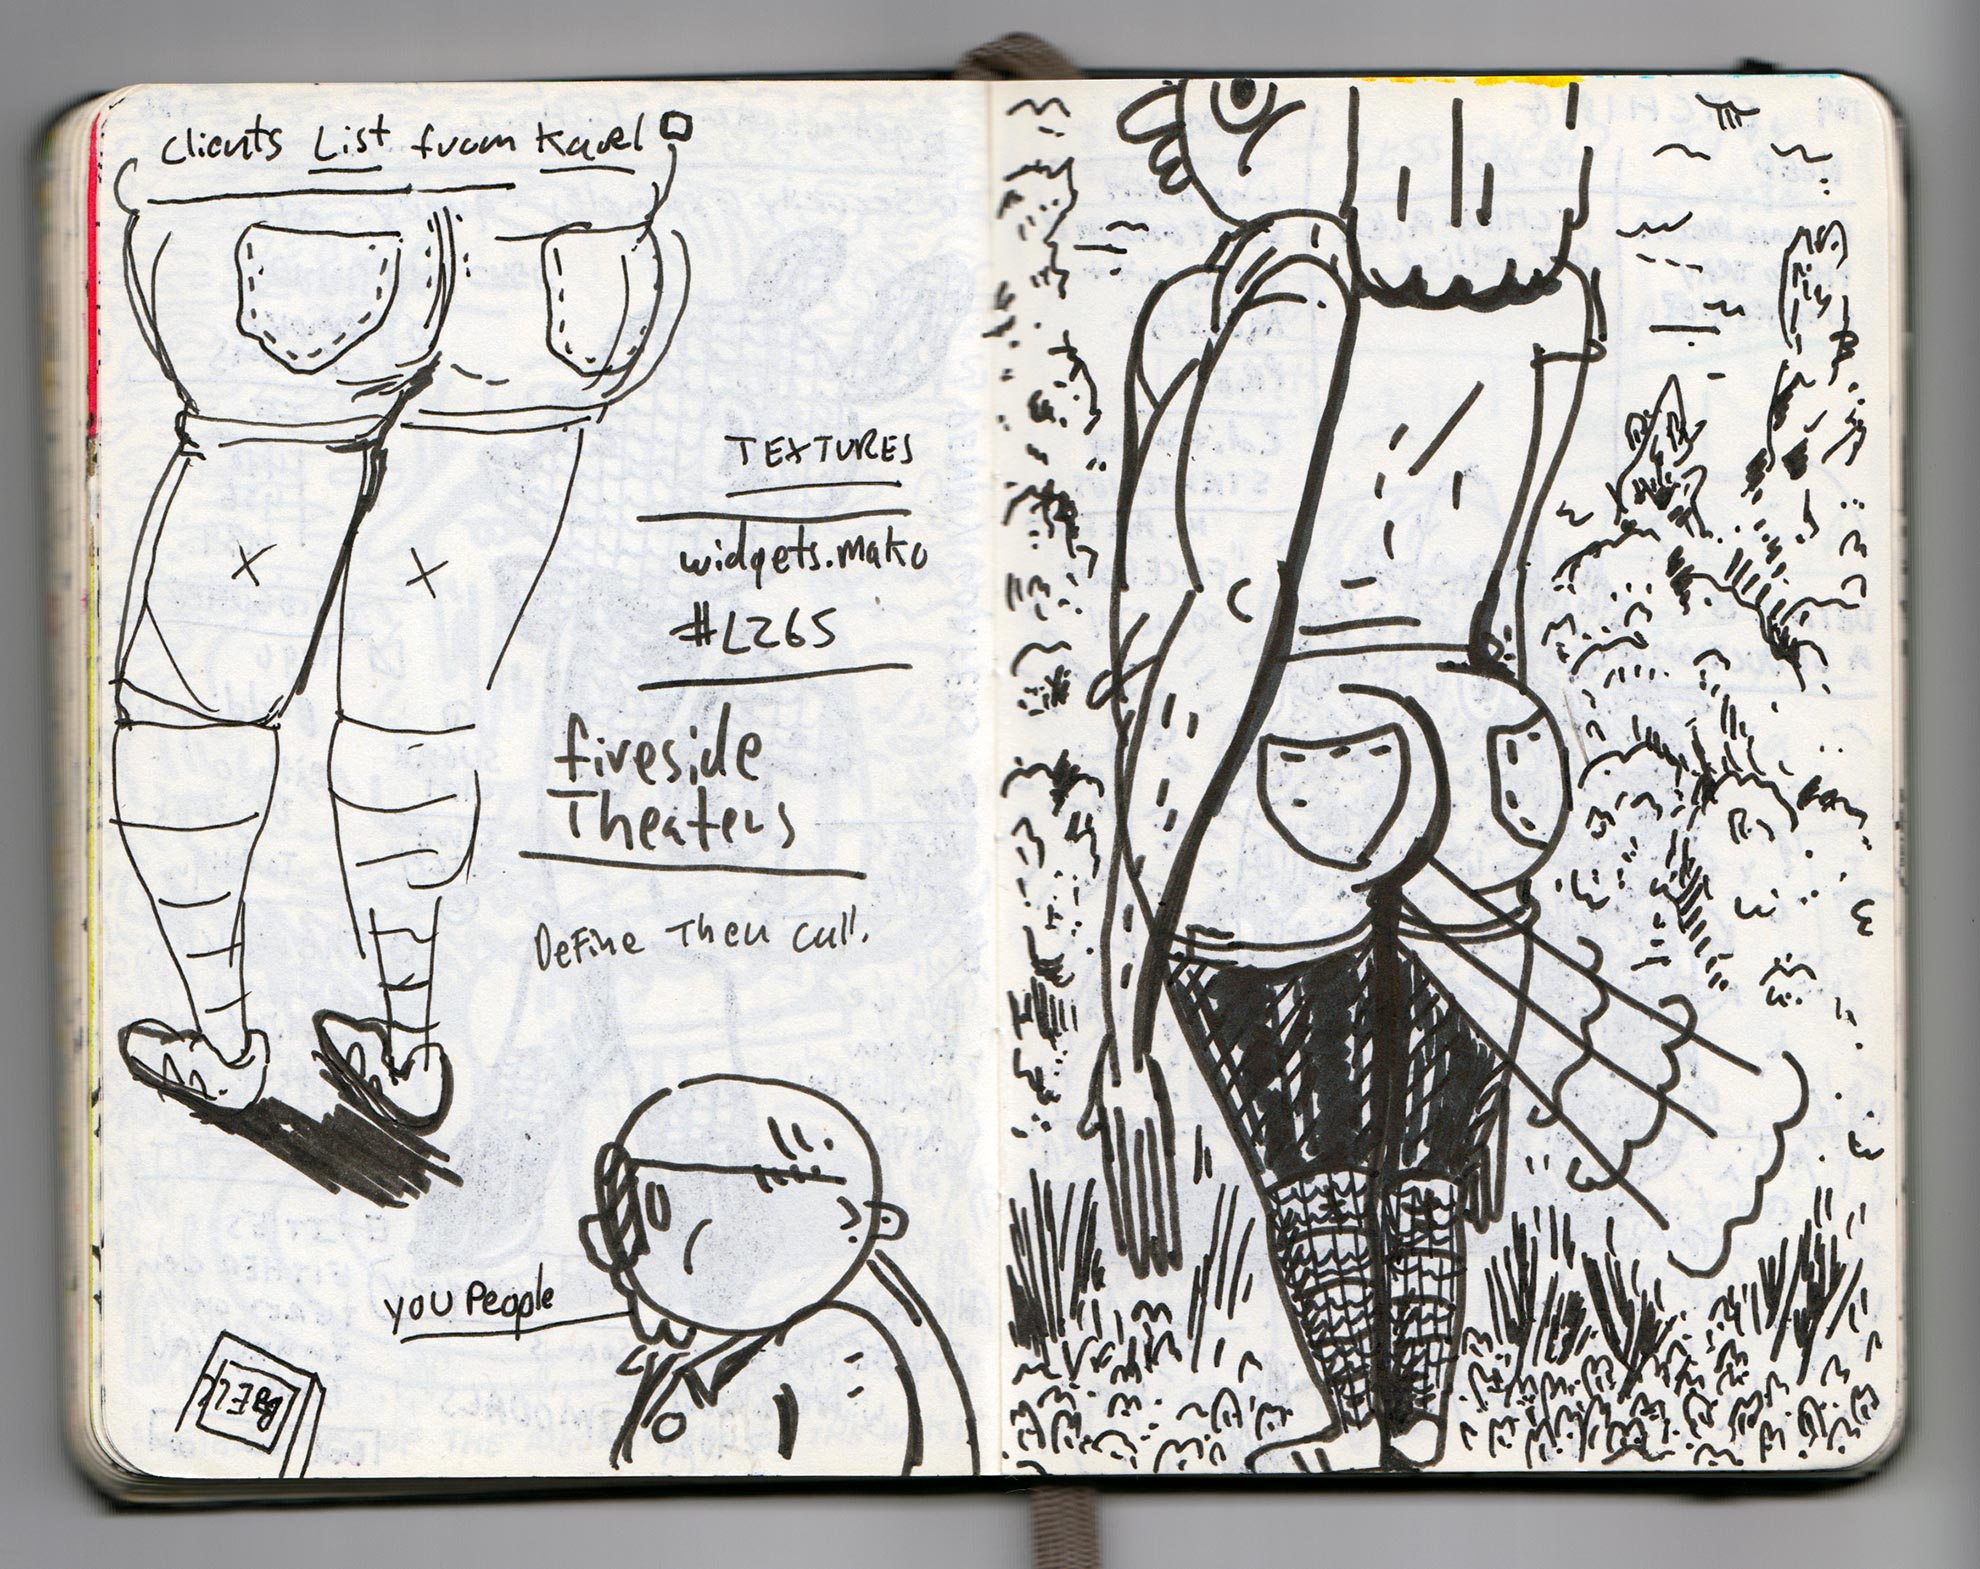 Clients List from Karel
TEXTURES
widgets.mako
#L265
fireside
Theaters
Define Then cull.
you People